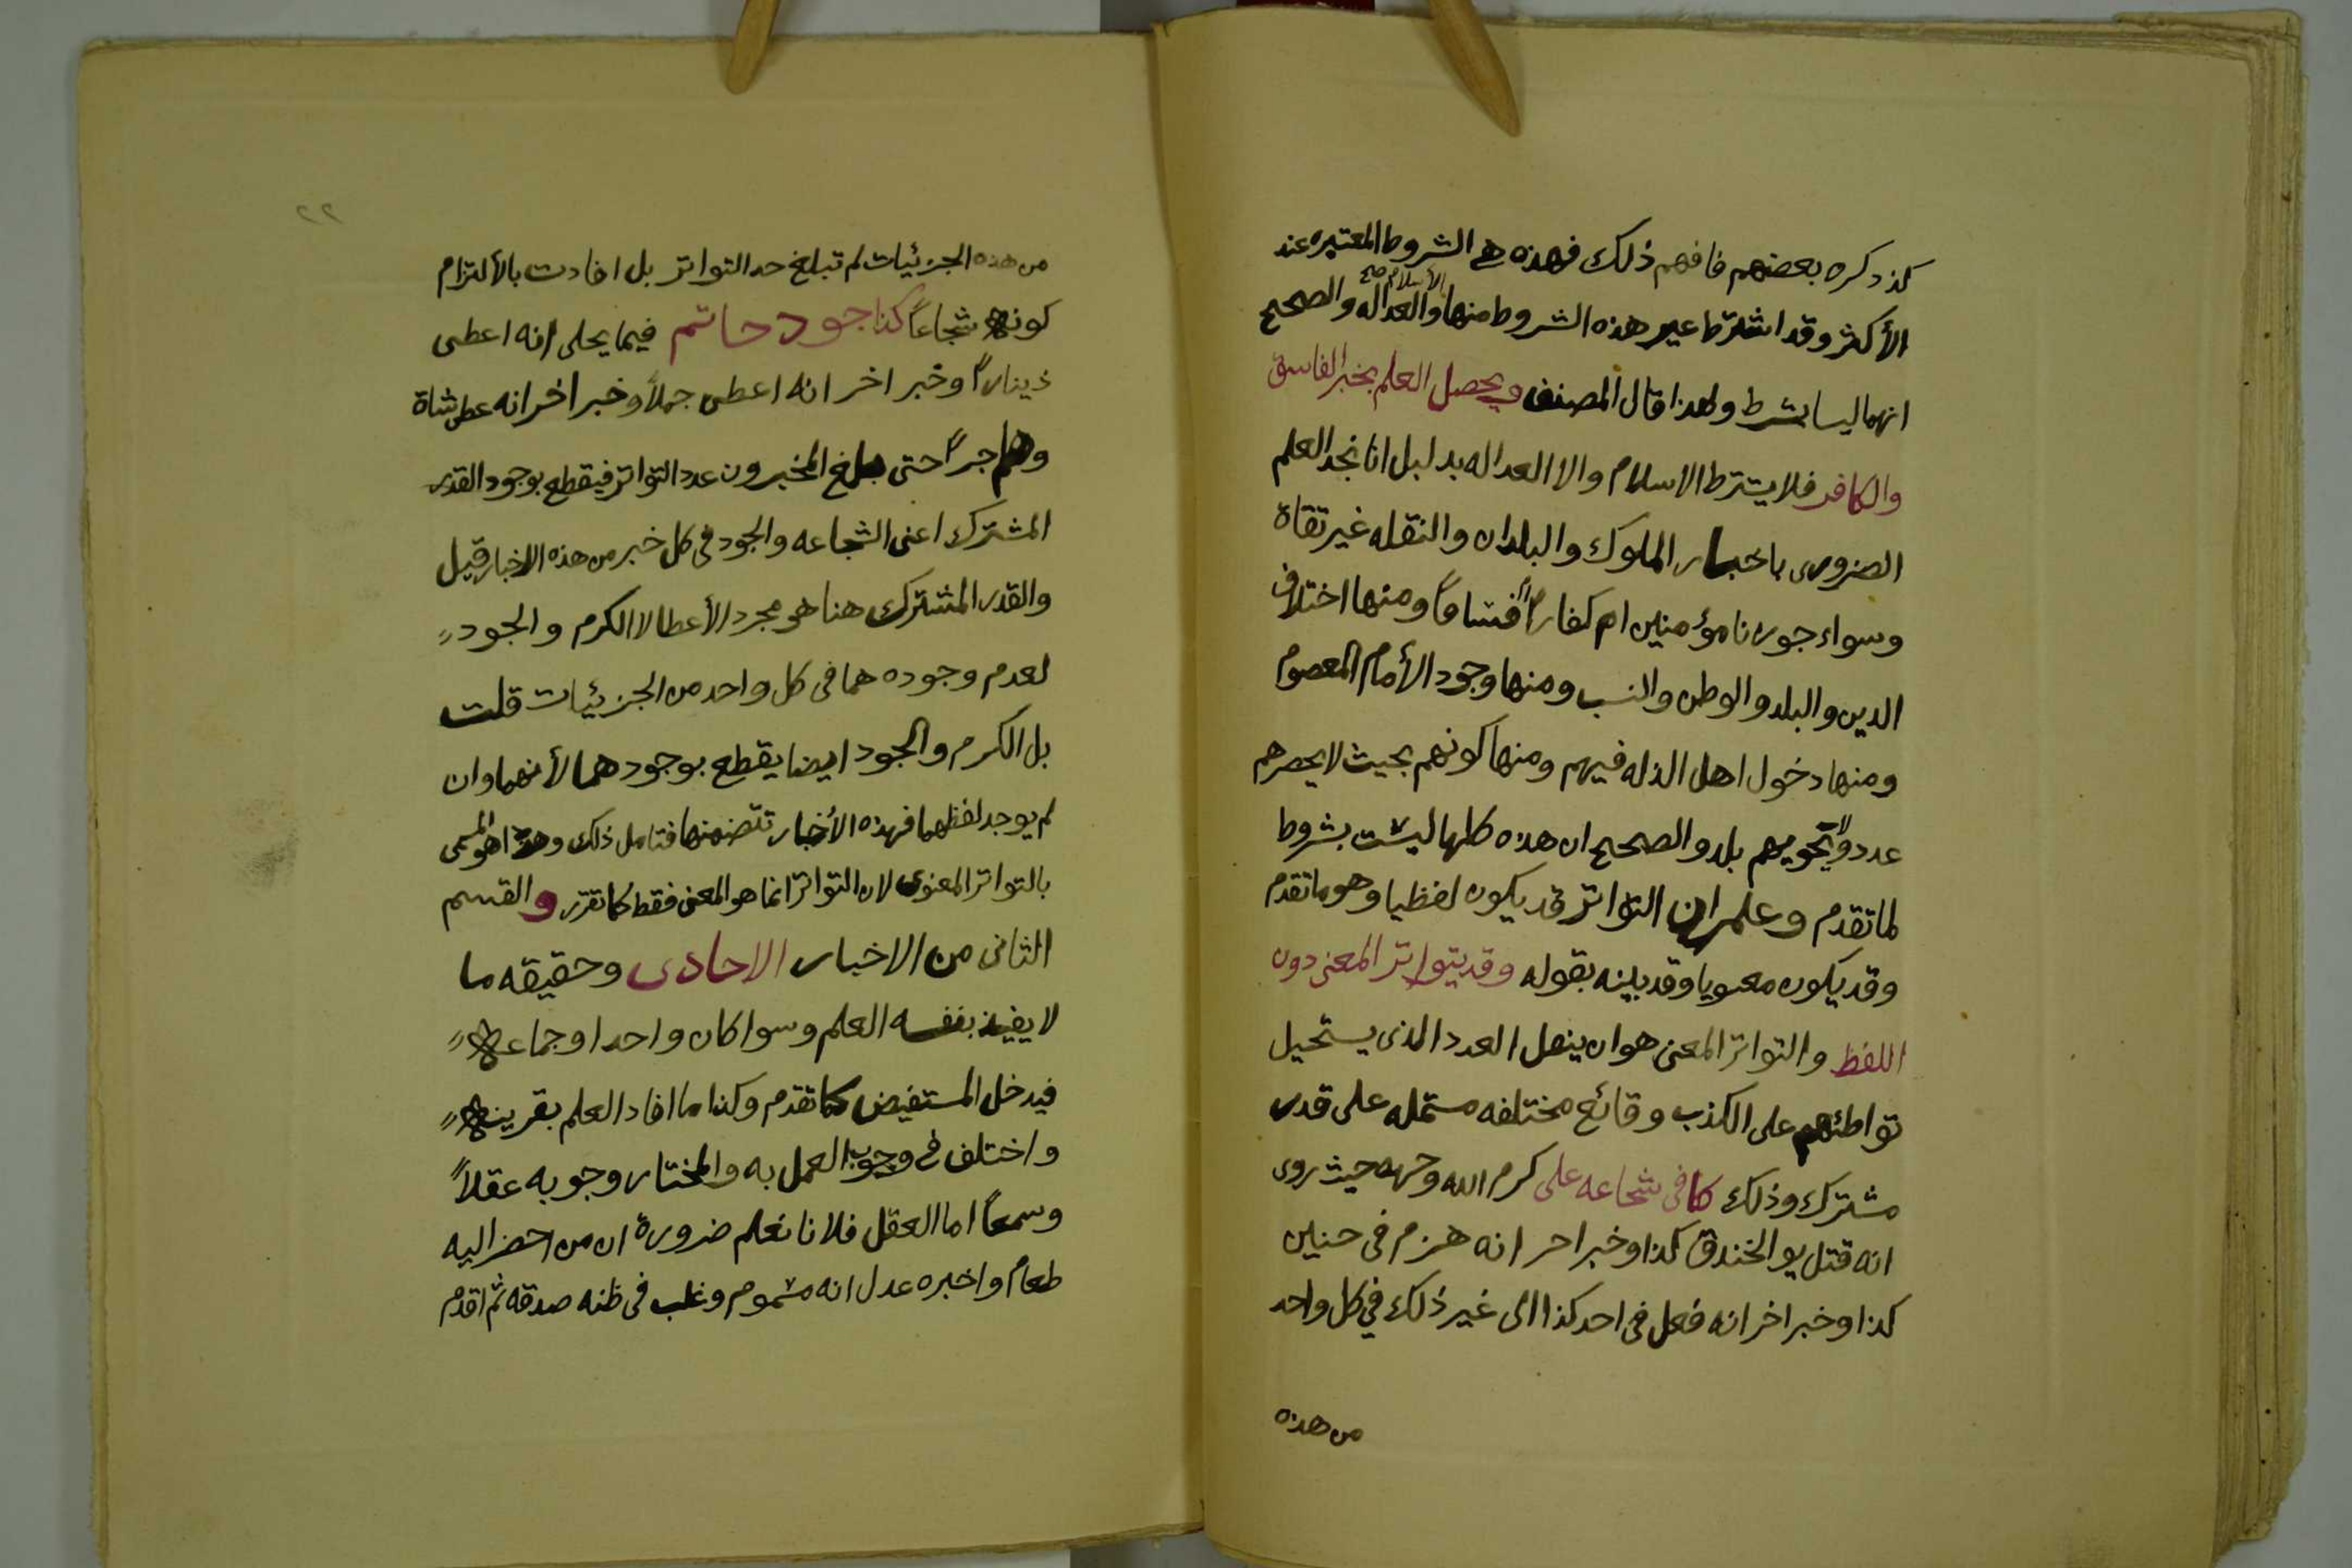 كذ ذكره بعضهم فافهم ذلك فهذه هي الشروط المعتبره عند
الأكثر وقد اشترط غير هذه الشروط منها الأسلام صح والعداله والصحيح
انهما ليسا بشرط ولهذا قال المصنف ويحصل العلم بخبر الفاسق
والكافر فلا يشترط الاسلام والا العداله بدليل انا نجد العلم
الضروري باخبار الملوك والبلدان والنقله غير ثقاة
وسواء جورنا مؤمنين ام كفاراً فساقاً ومنها اختلاف
الدين والبلد والوطن والنسب ومنها وجود الأمام المعصوم
ومنها دخول اهل الذله فيهم ومنها كونهم بحيث لا يحصرهم
عدد ولا يحويهم بلد والصحيح ان هذه كلها ليست بشروط
لما تقدم وعلم ان التواتر قد يكون لفظيا وهو ما تقدم
وقد يكون معنويا وقد بينه بقوله وقد يتواتر المعنى دون
اللفظ والتواتر المعنى هو ان ينقل العدد الذي يستحيل
تواطئهم على الكذب وقائع مختلفه مشتمله على قدر
مشترك وذلك كما في شجاعه علي كرم الله وجهه حيث روى
انه قتل يو الخندق كذا وخبر اخر انه هزم في حنين
كذا وخبر اخر انه فعل في احد كذا الى غير ذلك في كل واحد
من هذه
٢٢
من هذه الجزئيات لم تبلغ حد التواتر بل افادت بالألتزام
كونه شجاعاً كذا جود حاتم فيما يحكى انه اعطى
ديناراً وخبر اخر انه اعطى جملاً وخبر اخر انه عطى شاة
وهلم جراً حتى بلغ المخبرون عدد التواتر فيقطع بوجود القدر
المشترك اعنى الشجاعه والجود في كل خبر من هذه الاخبار قيل
والقدر المشترك هنا هو مجرد الأعطا لا الكرم والجود
لعدم وجوده هما في كل واحد من الجزئيات قلت
بل الكرم والجود ايضا يقطع بوجودهما لأنهما وان
لم يوجد لفظهما فهذه الأخبار تتضمنها فتامل ذلك وهذا هو المسمى
بالتواتر المعنوي لان التواتر انما هو المعنى فقط كما تقرر والقسم
الثاني من الاخبار الاحادى وحقيقه ما
لا يفيد بنفسه العلم وسوا كان واحدا او جماعه
فيدخل المستفيض كما تقدم وكذا ما افاد العلم بقرينه
واختلف في وجوب العمل به والمختار وجوبه عقلاً
وسمعاً اما العقل فلانا نعلم ضرورة ان من احضر اليه
طعام واخبره عدل انه مسموم وغلب في ظنه صدقه ثم اقدم